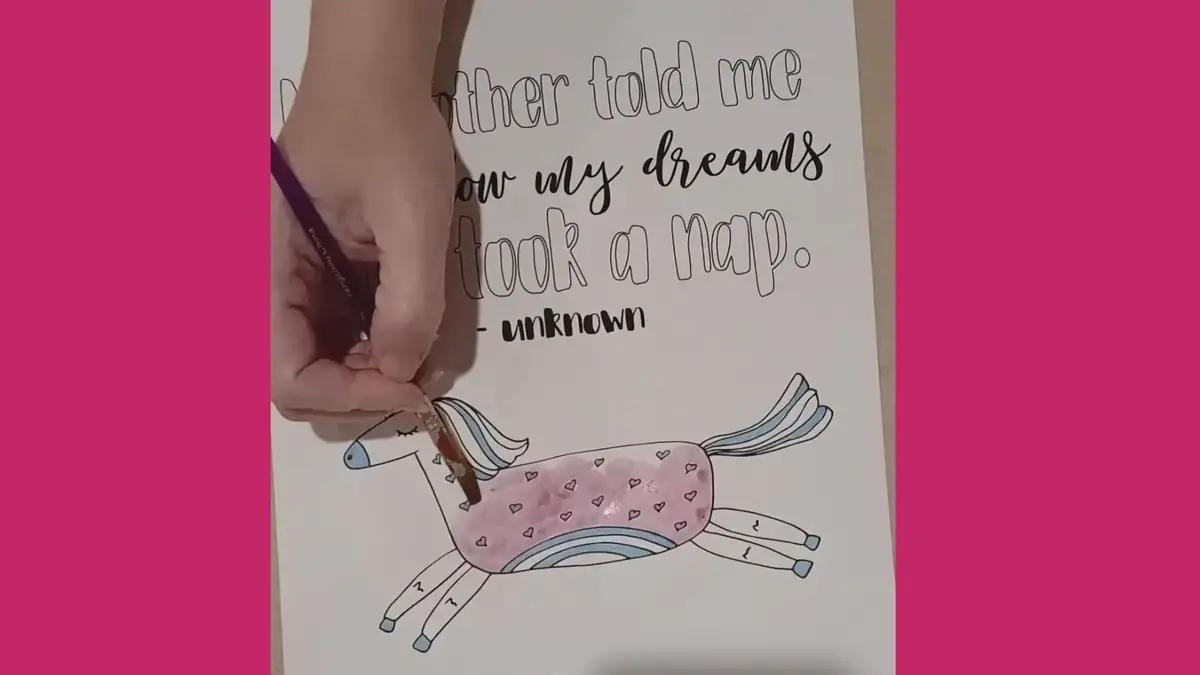 other told me
ow my dreams
took a nap.
- unknown